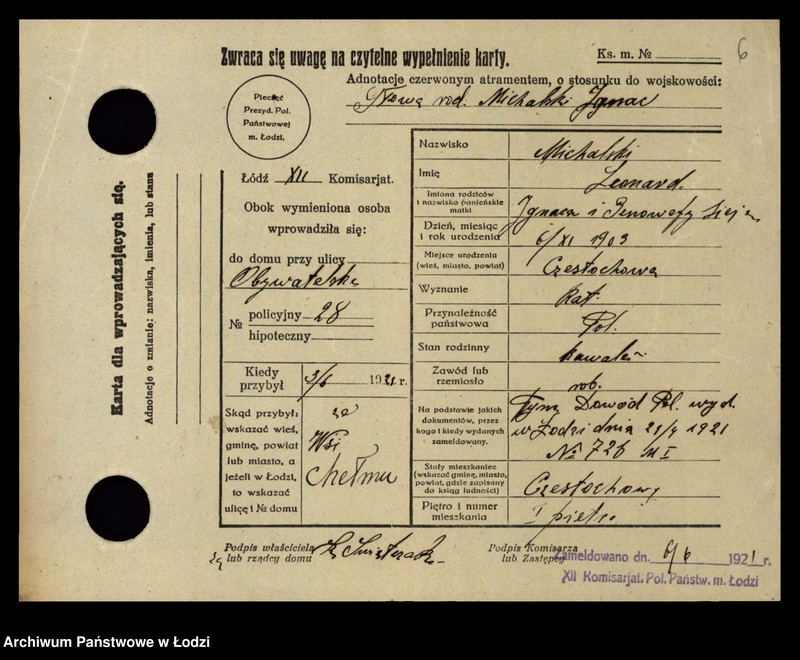 Zwraca się uwagę na czytelne wypełnienie karty.
Ks. m. № 
6
Adnotacje czerwonym atramentem, o stosunku do wojskowości:
rod. Michalski Ignac
Pieczęć
Prezyd. Pol.
Państwowej
m. Łodzi.
Łódź XII Komisarjat.
Obok wymieniona osoba
wprowadziła się:
do domu przy ulicy
Obywatelska
№ policyjny 28
hipoteczny
Kiedy przybył 3/6 1921 r.
Skąd przybył:
wskazać wieś,
gminę, powiat
lub miasto, a
jeżeli w Łodzi,
to wskazać
ulicę i № domu
ze
Wsi
Chełmu
Nazwisko Michalski
Imię Leonard.
Imiona rodziców
i nazwisko panieńskie
matki
Ignaca i
Dzień, miesiąc
i rok urodzenia 6/XI 1903
Miejsce urodzenia
(wieś, miasto, powiat) Częstochowa
Wyznanie Kat.
Przynależność
państwowa Pol.
Stan rodzinny kawaler
Zawód lub
rzemiosło rob.
Na podstawie jakich
dokumentów, przez
kogo i kiedy wydanych
zameldowany.
Tym. Dowód Pol. wyd.
w Łodzi dnia 21/V 1921
№ 726 III
Stały mieszkaniec
(wskazać gminę, miasto,
powiat, gdzie zapisany
do ksiąg ludności)
Częstochowy
Piętro i numer
mieszkania I piętro
Podpis właściciela
lub rządcy domu
Podpis Komisarza
lub Zastępcy
Zameldowano dn. 6/6 1921 r.
XII Komisarjat. Pol. Państw. m. Łodzi
Karta dla wprowadzających się.
Adnotacje o zmianie: nazwiska, imienia, lub stanu
Archiwum Państwowe w Łodzi